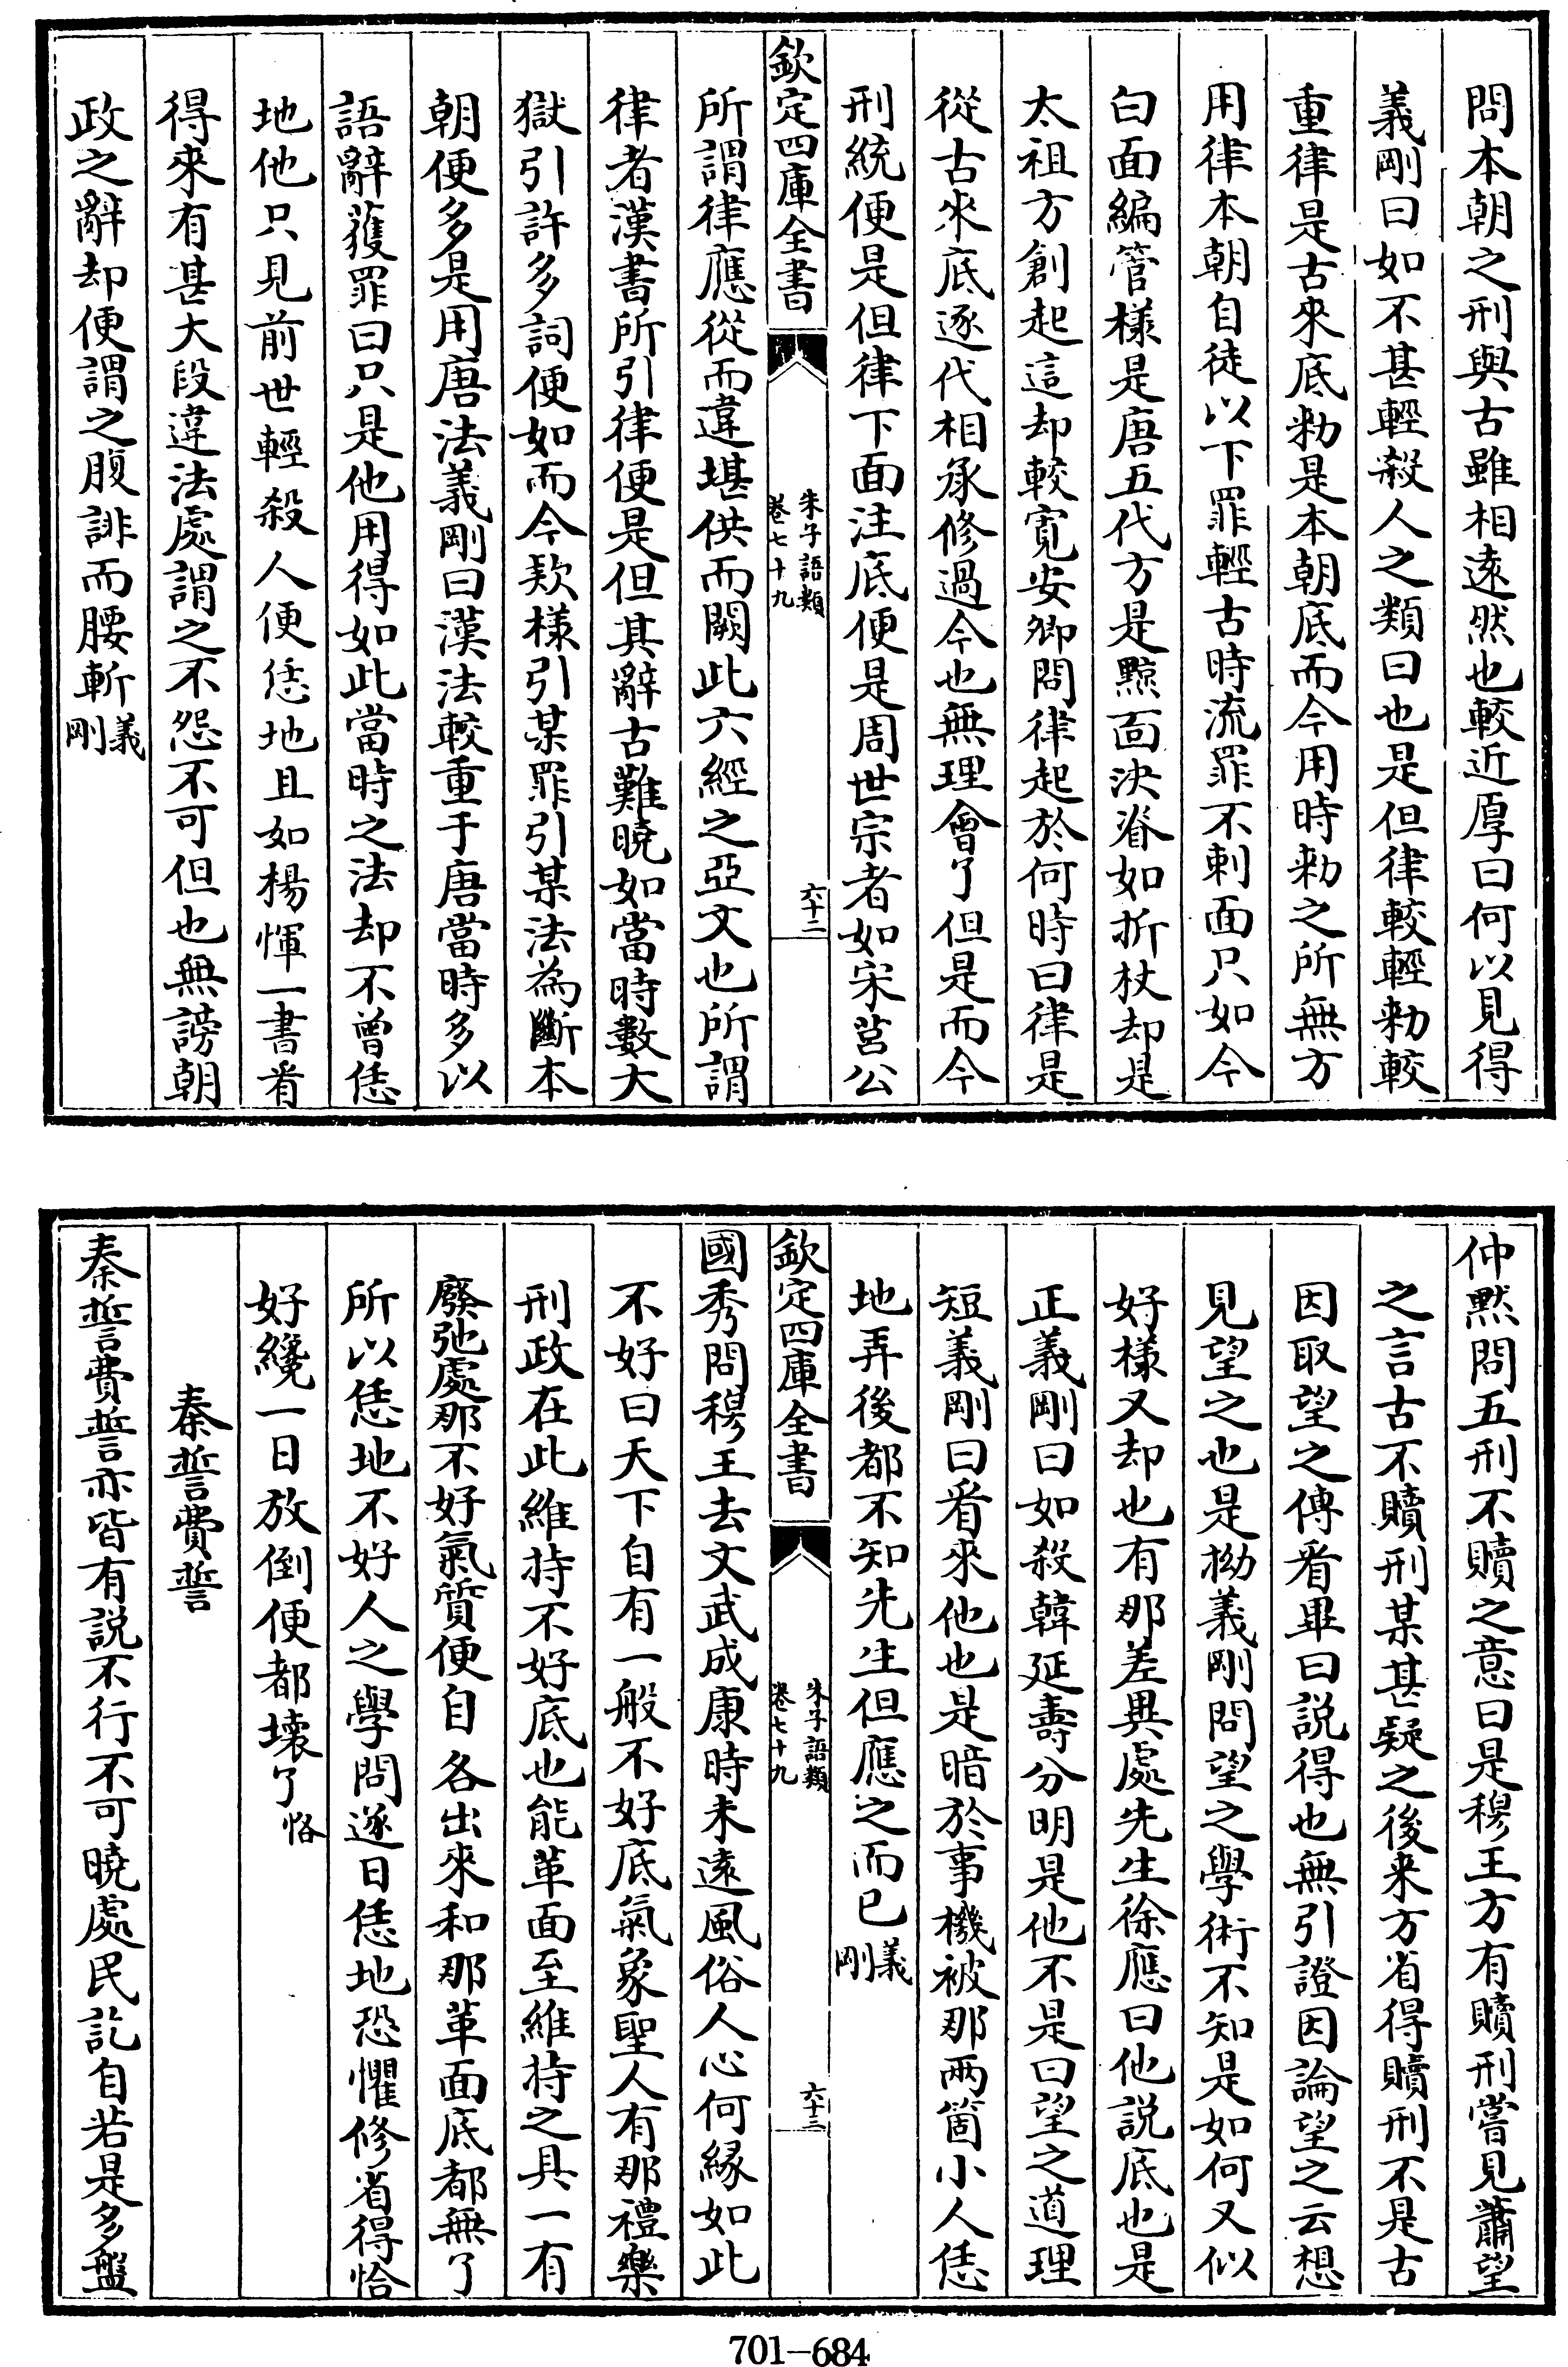 問本朝之刑與古雖相遠然也較近厚曰何以見得
義剛曰如不甚輕殺人之類曰也是但律較輕勑較
重律是古來底勑是本朝底而今用時勑之所無方
用律本朝自徒以下罪輕古時流罪不刺面只如今
白面編管樣是唐五代方是黥面決脊如折杖却是
太祖方創起這却較寛安卿問律起於何時曰律是
從古來底逐代相承修過今也無理會了但是而今
刑統便是但律下面注底便是周世宗者如宋莒公
欽定四庫全書
朱子語類
卷七十九
六十二
所謂律應從而違堪供而闕此六經之亞文也所謂
律者漢書所引律便是但其辭古難曉如當時數大
獄引許多詞便如而今款樣引某罪引某法為斷本
朝便多是用唐法義剛曰漢法較重于唐當時多以
語辭獲罪曰只是他用得如此當時之法却不曾恁
地他只見前世輕殺人便恁地且如楊惲一書看
得來有甚大段違法處謂之不怨不可但也無謗朝
政之辭却便謂之腹誹而腰斬義剛
仲黙問五刑不贖之意曰是穆王方有贖刑嘗見蕭望
之言古不贖刑某甚疑之後来方省得贖刑不是古
因取望之傳看畢曰説得也無引證因論望之云想
見望之也是拗義剛問望之學術不知是如何又似
好樣又却也有那差異處先生徐應曰他説底也是
正義剛曰如殺韓延壽分明是他不是曰望之道理
短義剛曰看來他也是暗於事機被那兩箇小人恁
地弄後都不知先生但應之而已義剛
欽定四庫全書
朱子語類
卷七十九
六十三
國秀問穆王去文武成康時未遠風俗人心何縁如此
不好曰天下自有一般不好底氣象聖人有那禮樂
刑政在此維持不好底也能革面至維持之具一有
廢弛處那不好氣質便自各出來和那革面底都無了
所以恁地不好人之學問逐日恁地恐懼修省得恰
好纔一日放倒便都壊了恪
秦誓費誓
秦誓費誓亦皆有説不行不可曉處民訖自若是多盤
701—684